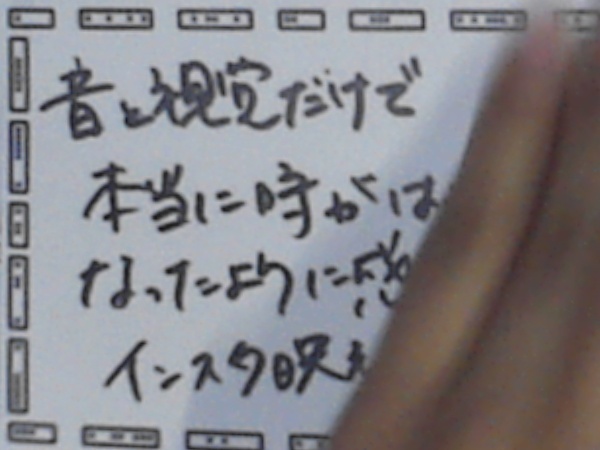 音と視覚だけで
本当に時がは
なったように感
インスタ映え